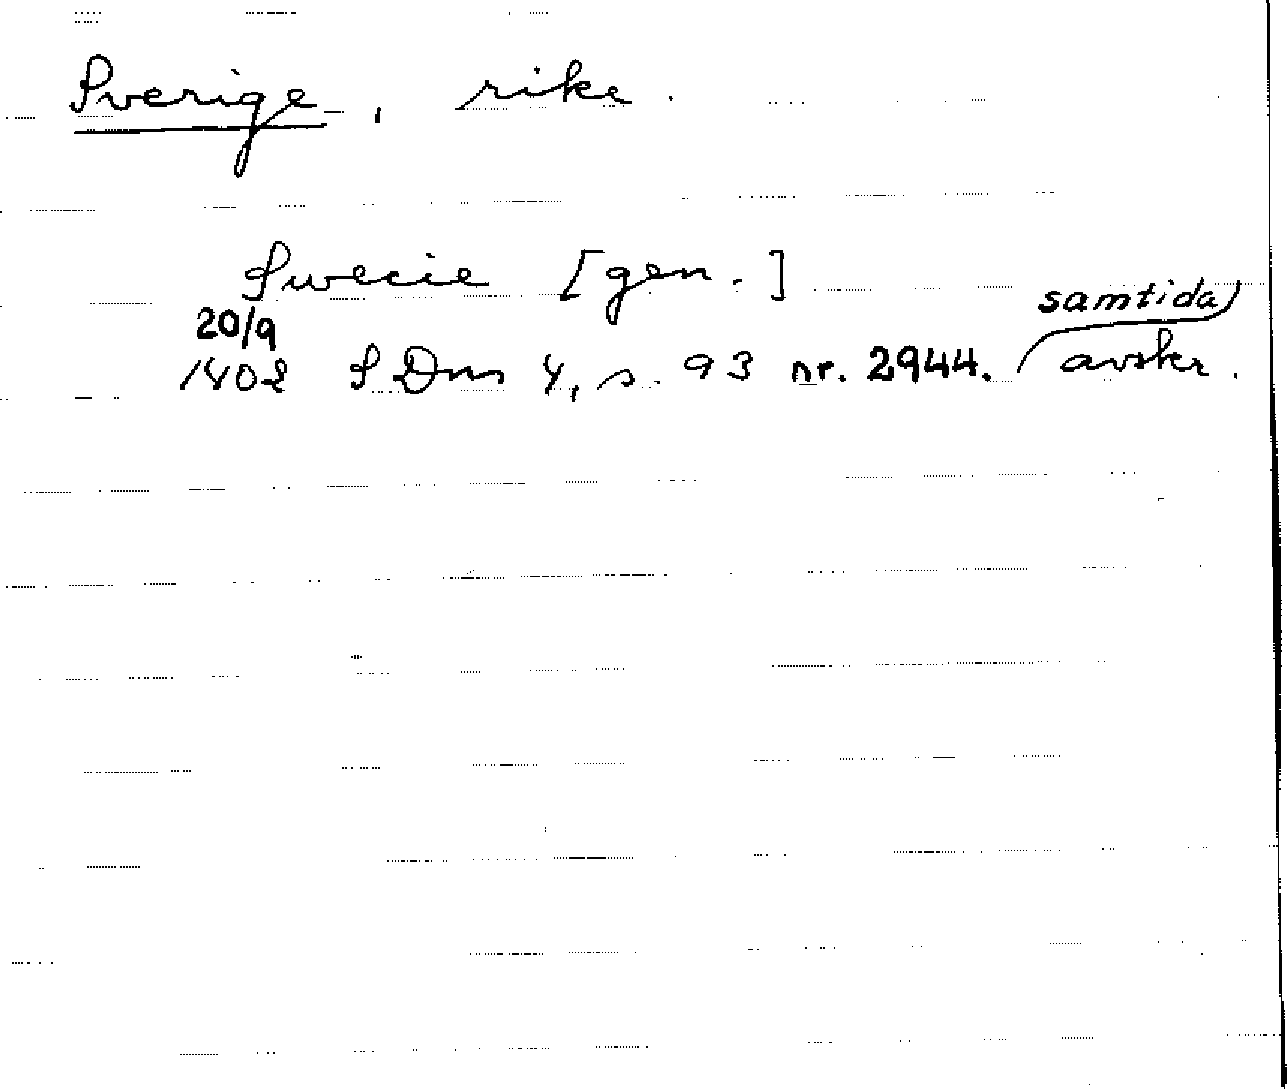 Sverige, rike.
Swecie [gen.]
20/9
1402 SDns 4, s. 93 nr. 2944. samtida avskr.